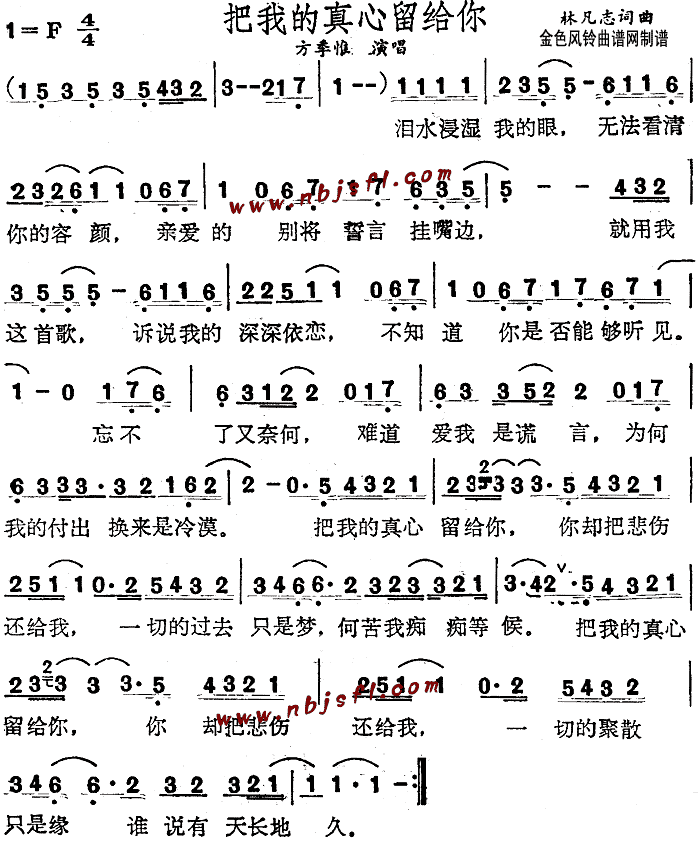 把我的真心留给你
1=F 4/4
林凡志词曲
方季惟 演唱
金色风铃曲谱网制谱
(1 5 3 5 3 5 432 | 3--217 | 1--) 1111 | 235 5-6116 |
泪水浸湿 我的眼， 无法看清
www.nbjsfl.com
232611 067 | 1 067 17 635 | 5 - - 432 |
你的容 颜， 亲爱的 别将 誓言 挂嘴边， 就用我
355 5-6116 | 22511 067 | 1067 1767 1 |
这首歌， 诉说我的 深深依恋， 不知道 你是否能够听见。
1-0 176 | 63122 017 | 63 3522 017 |
忘不 了又奈何， 难道 爱我 是谎 言， 为何
6 3 33·32 162 | 2-0·54321 | 23 2 333·54321 |
我的付出 换来是冷漠。 把我的真心 留给你， 你却把悲伤
2511 0·25432 | 3466·2323321 | 3·42 2·54321 |
还给我， 一切的过去 只是梦，何苦我痴 痴等 侯。 把我的真心
23 2 3 3 3·5 4321 | 2511 0·2 5432
www.nbjsfl.com
留给你， 你 却把悲伤 还给我， 一 切的聚散
346 6·2 32 321 | 1 1·1 - :||
只是缘 谁 说有 天长地 久。